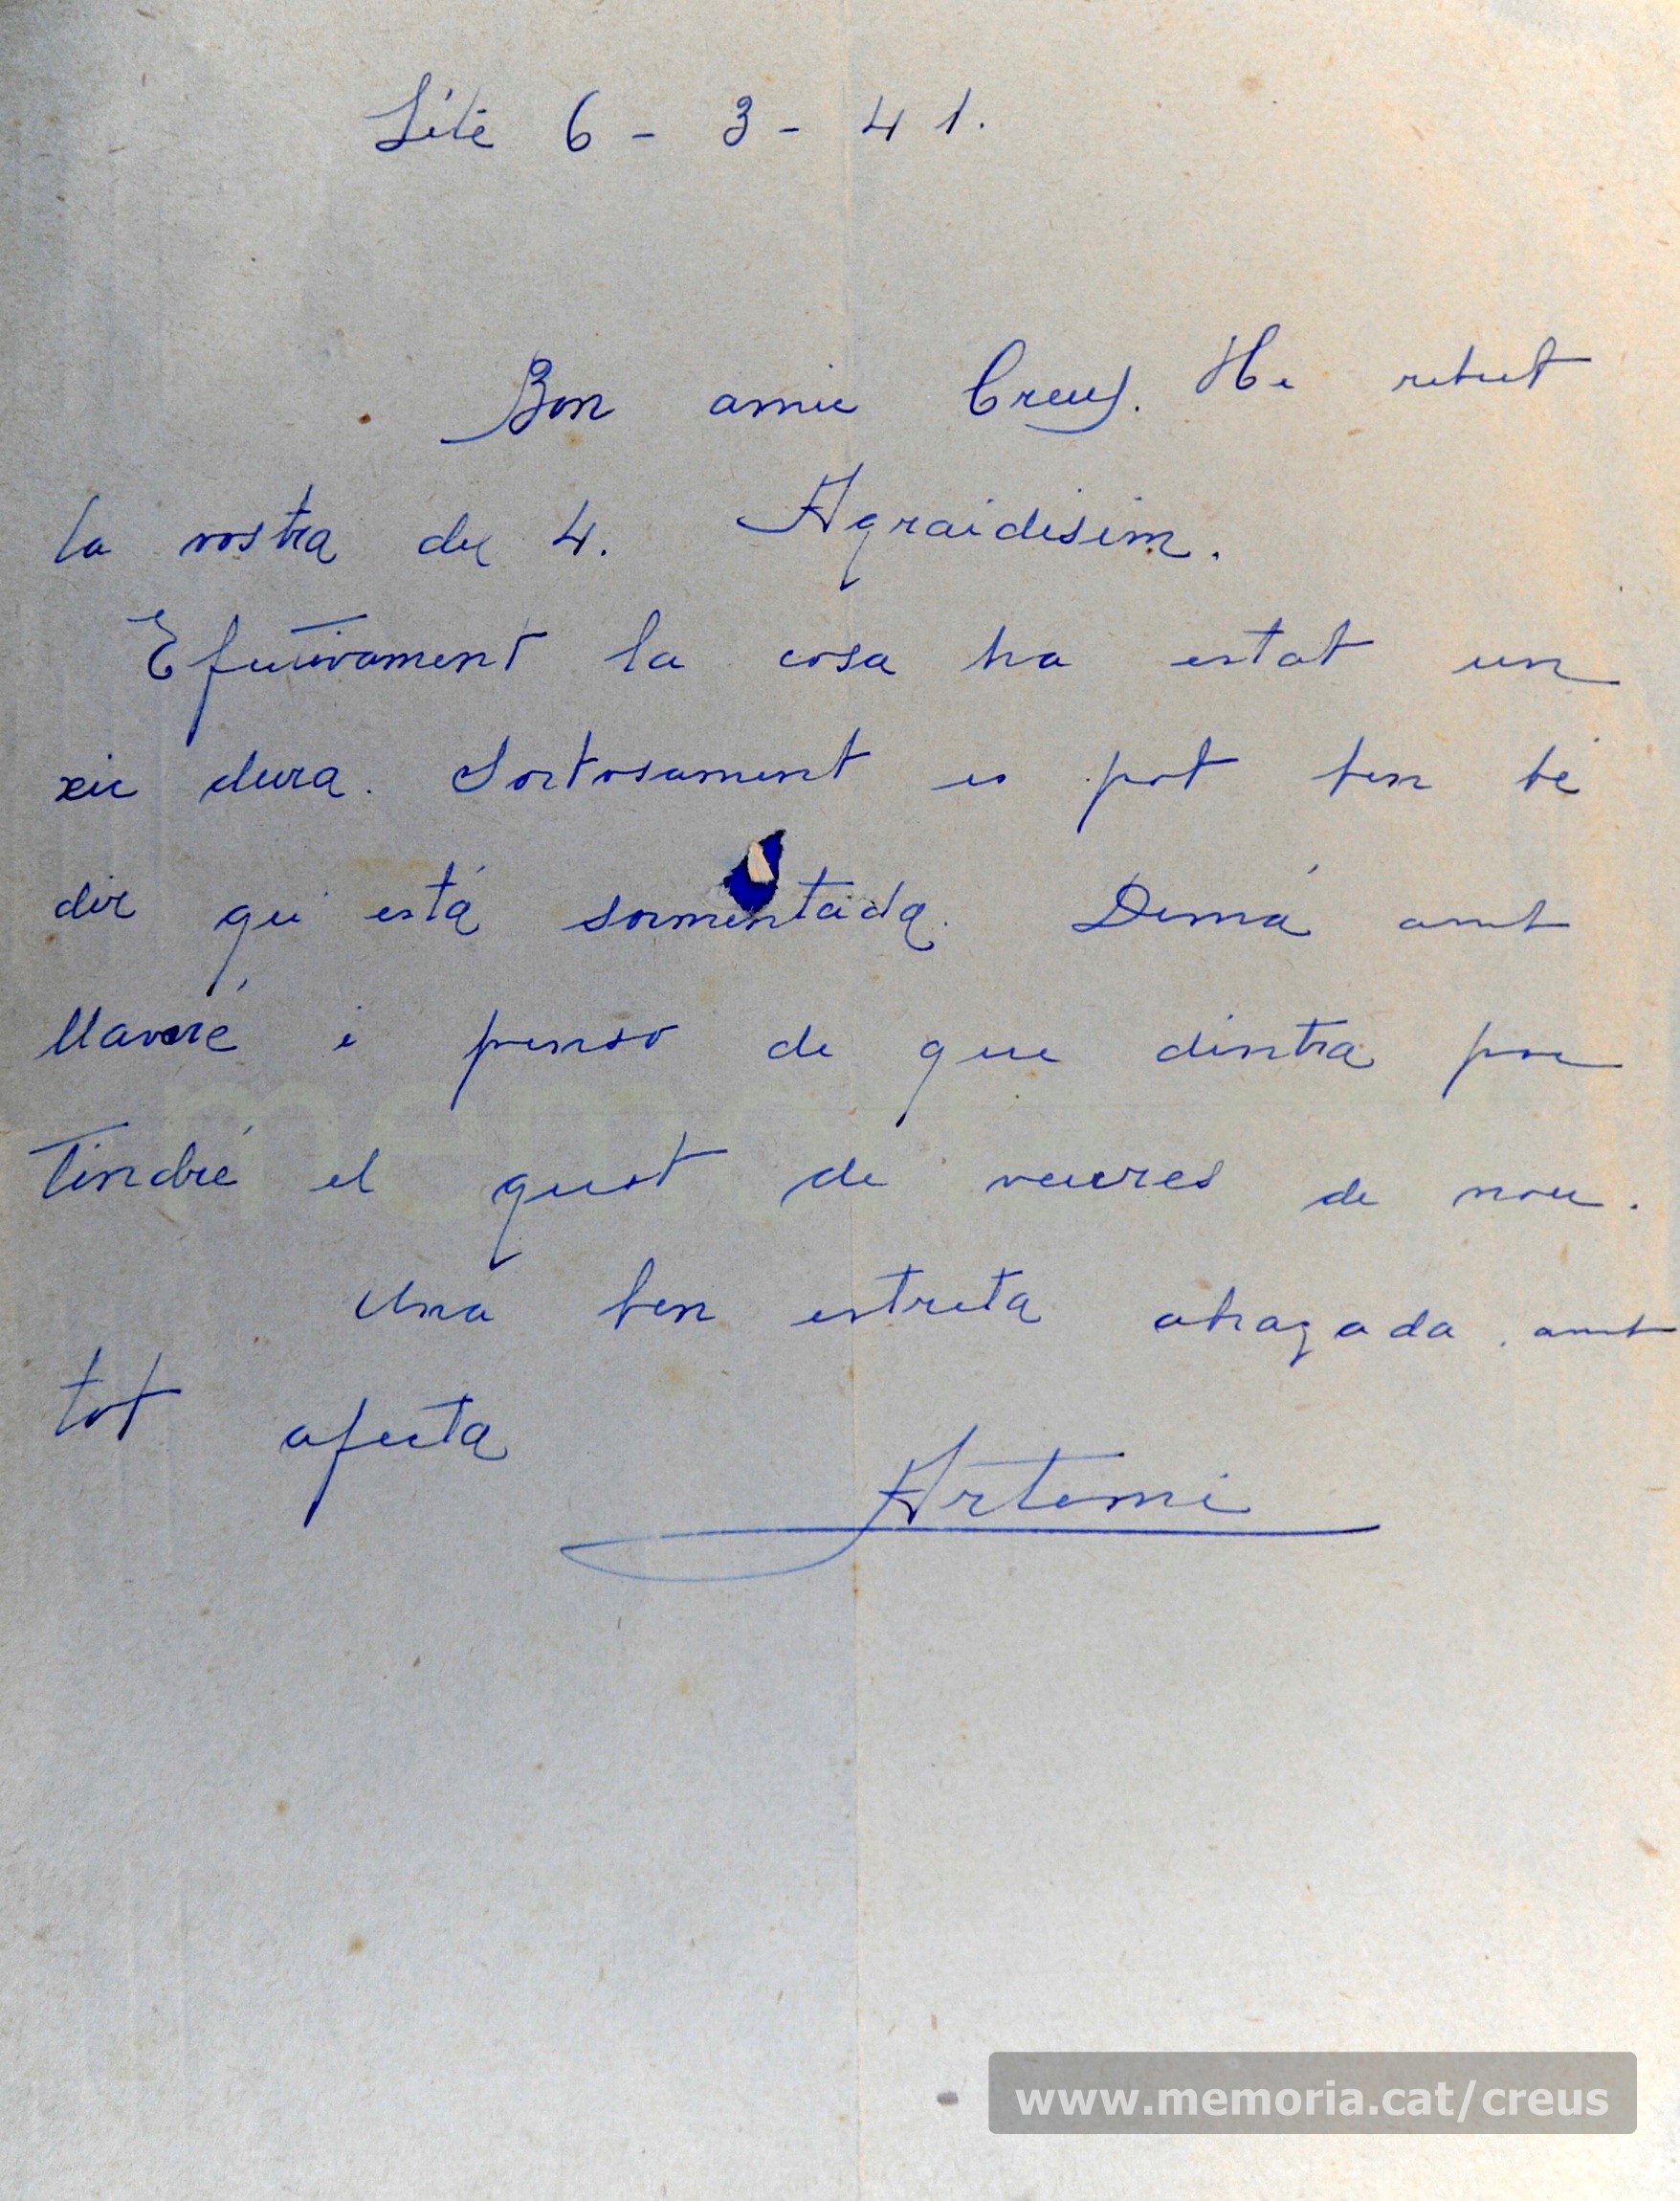 Sété 6 - 3 - 41.
Bon amic Creus. He rebut
la vostra del 4. Agraidisim.
Efectivament la cosa ha estat un
xic dura. Sortosament es pot ben bé
dir qui está sormentada. Demá amb
llavoré i penso de que dintra poc
tindré el gust de veures de nou.
Una ben estreta abraçada amb
tot afecta
Artemi
www.memoria.cat/creus